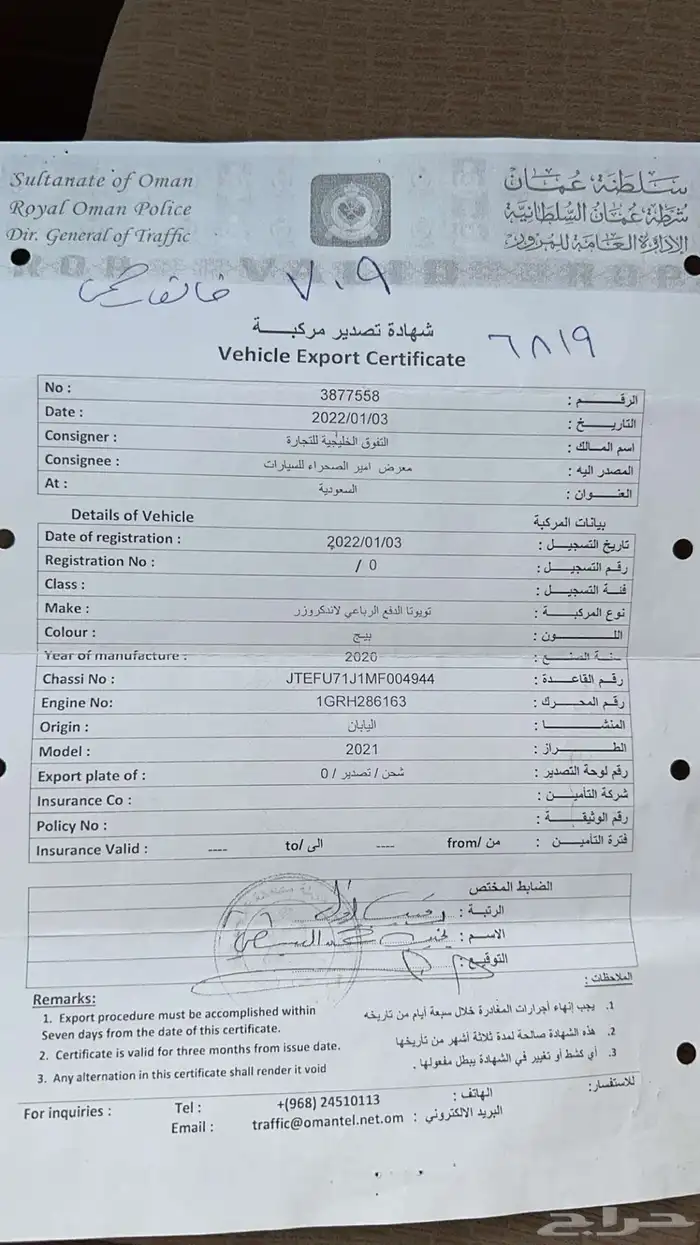 Sultanate of Oman
Royal Oman Police
Dir. General of Traffic
سلطنة عمان
شرطة عمان السلطانية
الإدارة العامة للمرور
٧٠٩
٦٨١٩
شهادة تصدير مركبة
Vehicle Export Certificate
No : 3877558 الرقم :
Date : 2022/01/03 التاريخ :
Consigner : التفوق الخليجية للتجارة اسم المالك :
Consignee : معرض امير الصحراء للسيارات المصدر اليه :
At : السعودية العنوان :
Details of Vehicle بيانات المركبة
Date of registration : 2022/01/03 تاريخ التسجيل :
Registration No : / 0 رقم التسجيل :
Class : فئة التسجيل :
Make : تويوتا الدفع الرباعي لاندكروزر نوع المركبة :
Colour : بيج اللون :
Year of manufacture : 2020 سنة الصنع :
Chassi No : JTEFU71J1MF004944 رقم القاعدة :
Engine No: 1GRH286163 رقم المحرك :
Origin : اليابان المنشا :
Model : 2021 الطراز :
Export plate of : شحن / تصدير / 0 رقم لوحة التصدير :
Insurance Co : شركة التأمين :
Policy No : رقم الوثيقة :
Insurance Valid : ---- to/ الى ---- from/ من فترة التأمين :
الضابط المختص
الرتبة :
الاسم :
التوقيع :
الملاحظات :
1. يجب إنهاء أجرارات المغادرة خلال سبعة أيام من تاريخه
2. هذه الشهادة صالحة لمدة ثلاثة أشهر من تأريخها
3. أي كشط أو تغيير في الشهادة يبطل مفعولها .
Remarks:
1. Export procedure must be accomplished within
Seven days from the date of this certificate.
2. Certificate is valid for three months from issue date.
3. Any alternation in this certificate shall render it void
للاستفسار:
For inquiries : Tel : +(968) 24510113 الهاتف :
Email : traffic@omantel.net.om البريد الالكتروني :
حراج